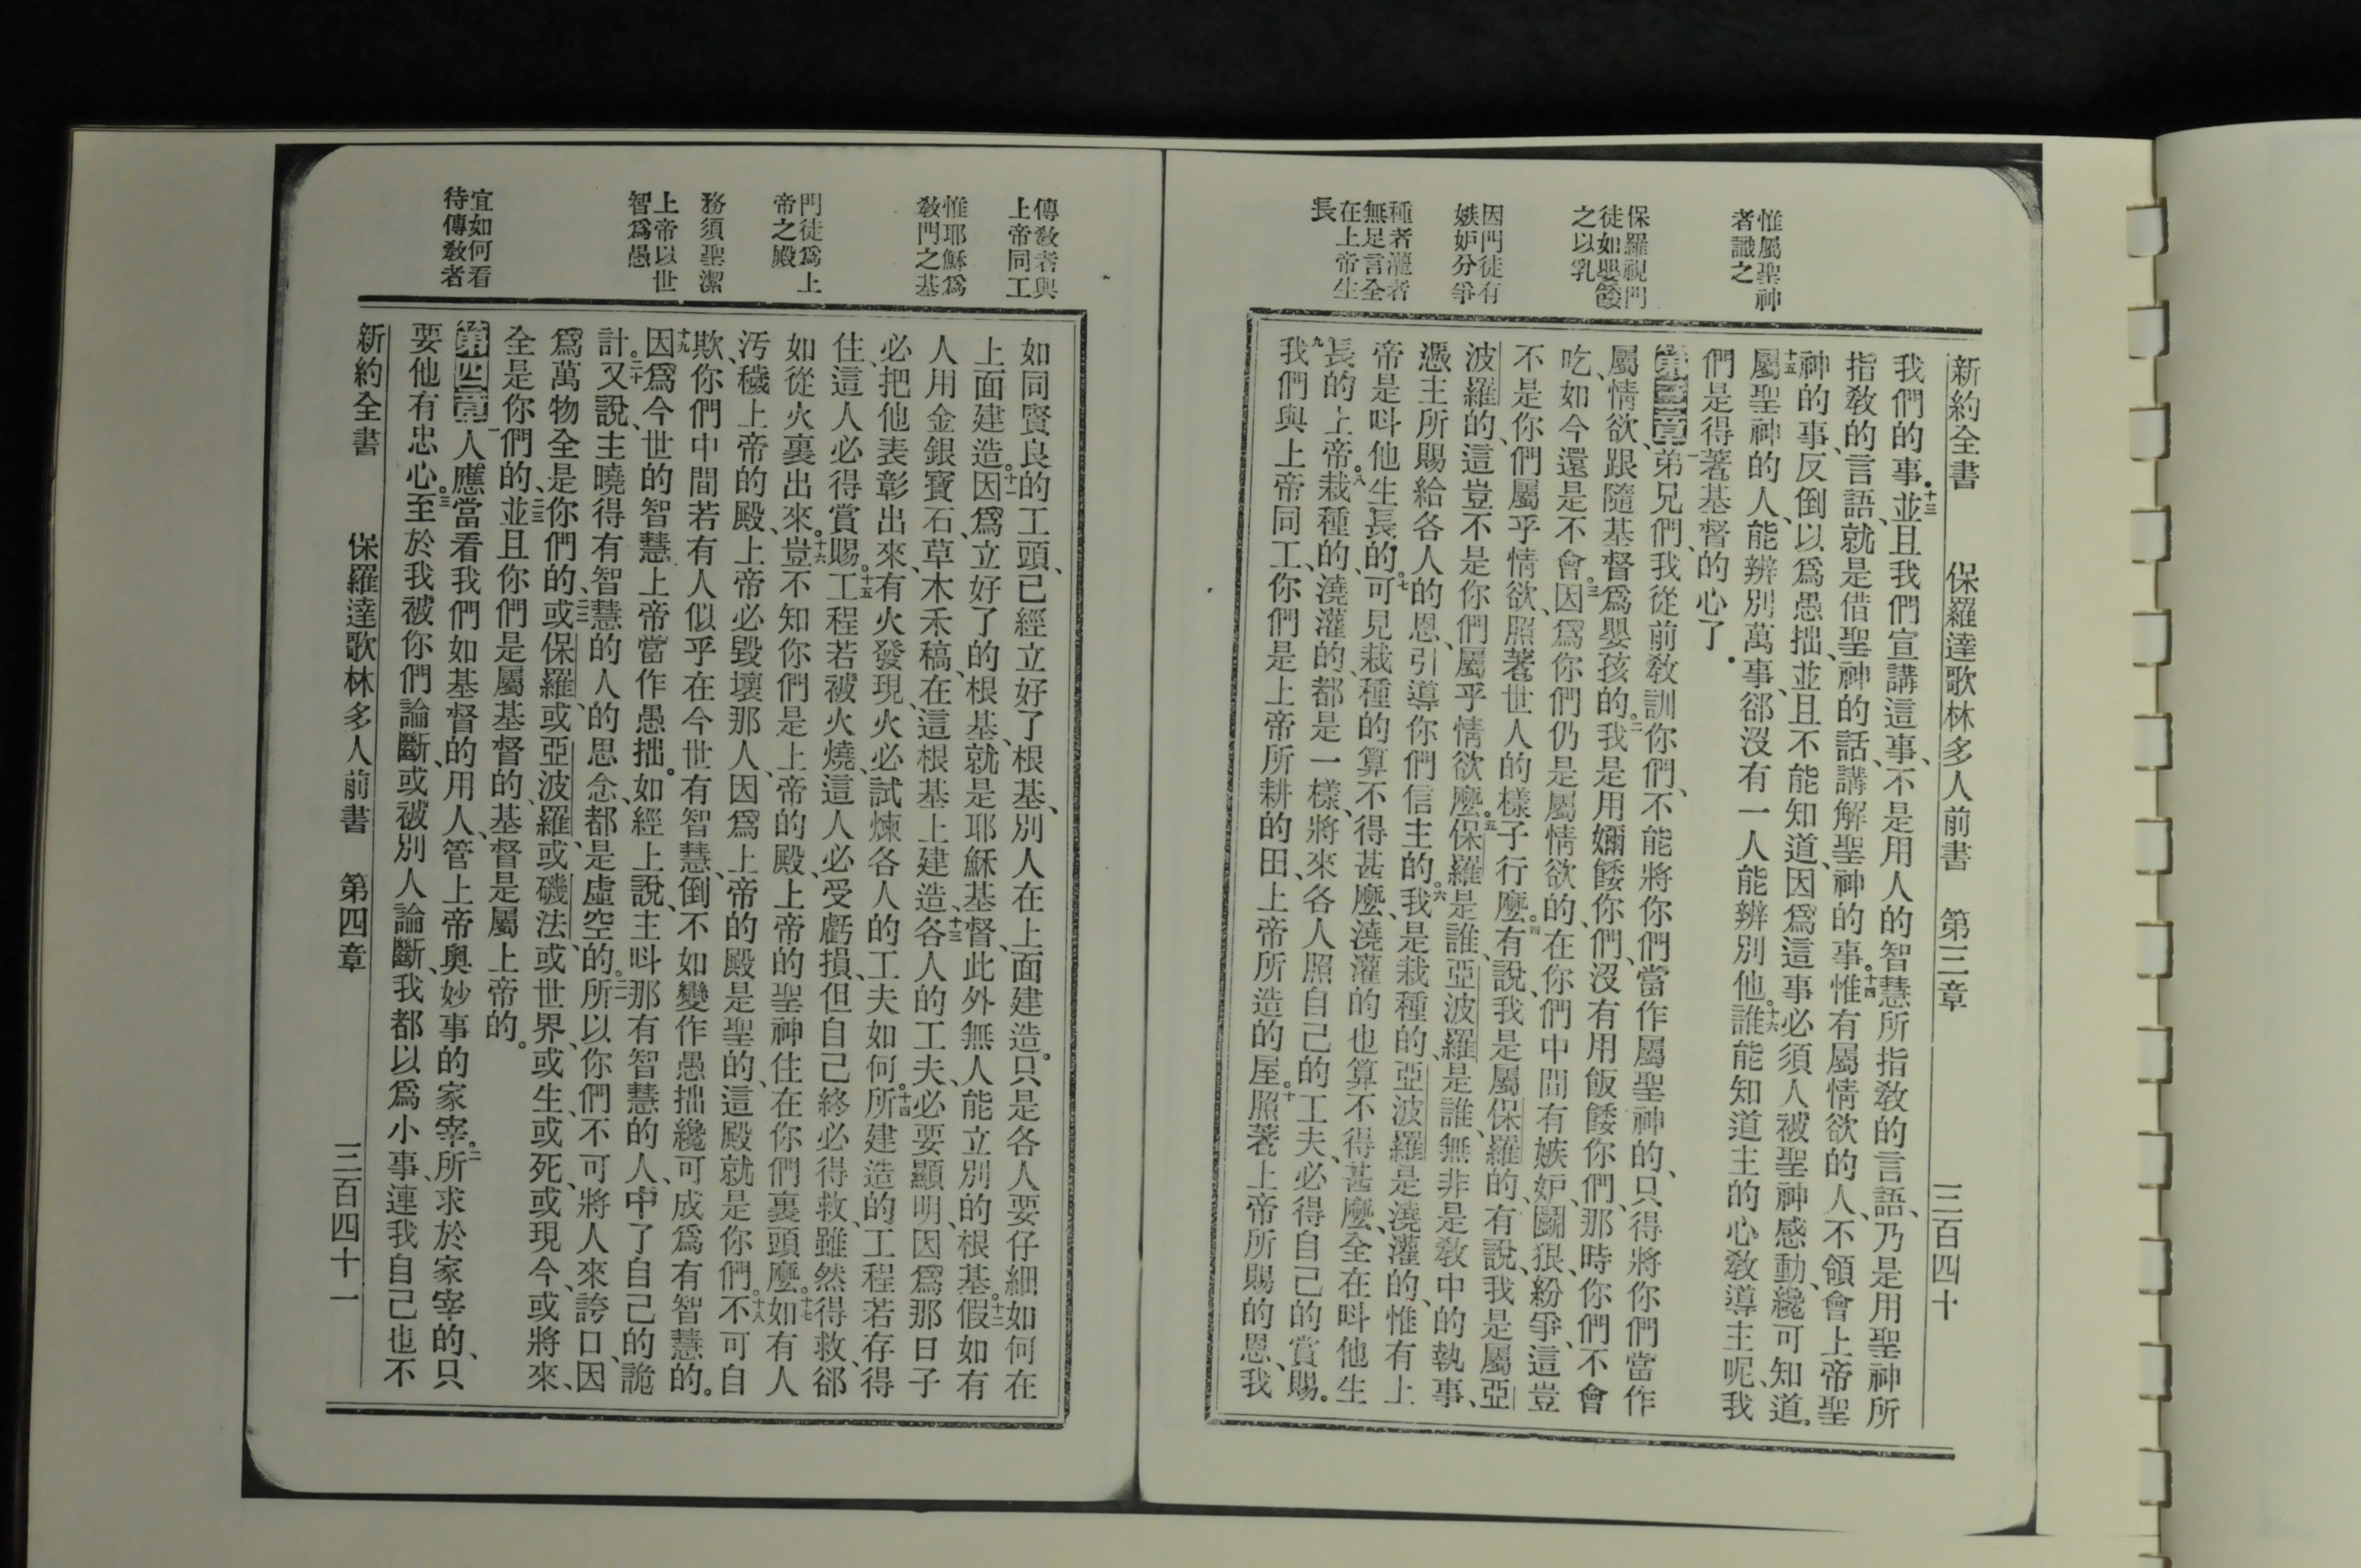 惟屬聖神
者識之
保羅視門
徒如嬰餧
之以乳
因門徒有
嫉妒分爭
種者灌者
無足言全
在上帝生
長
新約全書 保羅達歌林多人前書 第三章 三百四十
我們的事。十三並且我們宣講這事、不是用人的智慧所指敎的言語、乃是用聖神所
指敎的言語、就是借聖神的話、講解聖神的事。十四惟有屬情欲的人、不領會上帝聖
神的事、反倒以爲愚拙、並且不能知道、因爲這事必須人被聖神感動、纔可知道。
十五屬聖神的人、能辨別萬事、郤沒有一人能辨別他。十六誰能知道主的心敎導主呢、我
們是得著基督的心了。
第三章一弟兄們、我從前敎訓你們、不能將你們當作屬聖神的、只得將你們當作
屬情欲、跟隨基督爲嬰孩的。二我是用嬭餧你們、沒有用飯餧你們、那時你們不會
吃、如今還是不會。三因爲你們仍是屬情欲的、在你們中間有嫉妒、鬬狠、紛爭、這豈
不是你們屬乎情欲、照著世人的樣子行麼。四有說、我是屬保羅的、有說、我是屬亞
波羅的、這豈不是你們屬乎情欲麼。五保羅是誰、亞波羅是誰、無非是敎中的執事、
憑主所賜給各人的恩、引導你們信主的。六我是栽種的、亞波羅是澆灌的、惟有上
帝是呌他生長的。七可見栽種的算不得甚麼、澆灌的也算不得甚麼、全在呌他生
長的上帝。八栽種的、澆灌的、都是一樣、將來各人照自己的工夫、必得自己的賞賜。
九我們與上帝同工、你們是上帝所耕的田、上帝所造的屋。十照著上帝所賜的恩、我
傳敎者與
上帝同工
惟耶穌爲
敎門之基
門徒爲上
帝之殿
務須聖潔
上帝以世
智爲愚
宜如何看
待傳敎者
如同賢良的工頭、已經立好了根基、別人在上面建造。只是各人要仔細如何在
上面建造。十一因爲立好了的根基、就是耶穌基督、此外無人能立別的根基。十二假如有
人用金銀寶石、草木禾稿、在這根基上建造、十三各人的工夫、必要顯明、因爲那日子
必把他表彰出來、有火發現、火必試煉各人的工夫如何。十四所建造的工程若存得
住、這人必得賞賜。十五工程若被火燒、這人必受虧損、但自己終必得救、雖然得救、郤
如從火裏出來。十六豈不知你們是上帝的殿、上帝的聖神住在你們裏頭麼。十七如有人
汚穢上帝的殿、上帝必毀壞那人、因爲上帝的殿是聖的、這殿就是你們。十八不可自
欺、你們中間若有人似乎在今世有智慧、倒不如變作愚拙、纔可成爲有智慧的。
十九因爲今世的智慧、上帝當作愚拙。如經上說、主呌那有智慧的人、中了自己的詭
計。二十又說、主曉得有智慧的人的思念、都是虛空的。二一所以你們不可將人來誇口、因
爲萬物全是你們的、二二或保羅、或亞波羅、或磯法、或世界、或生、或死、或現今、或將來、
全是你們的、二三並且你們是屬基督的、基督是屬上帝的。
第四章一人應當看我們如基督的用人、管上帝奥妙事的家宰。二所求於家宰的、只
要他有忠心。三至於我被你們論斷、或被別人論斷、我都以爲小事、連我自己也不
新約全書 保羅達歌林多人前書 第四章 三百四十一